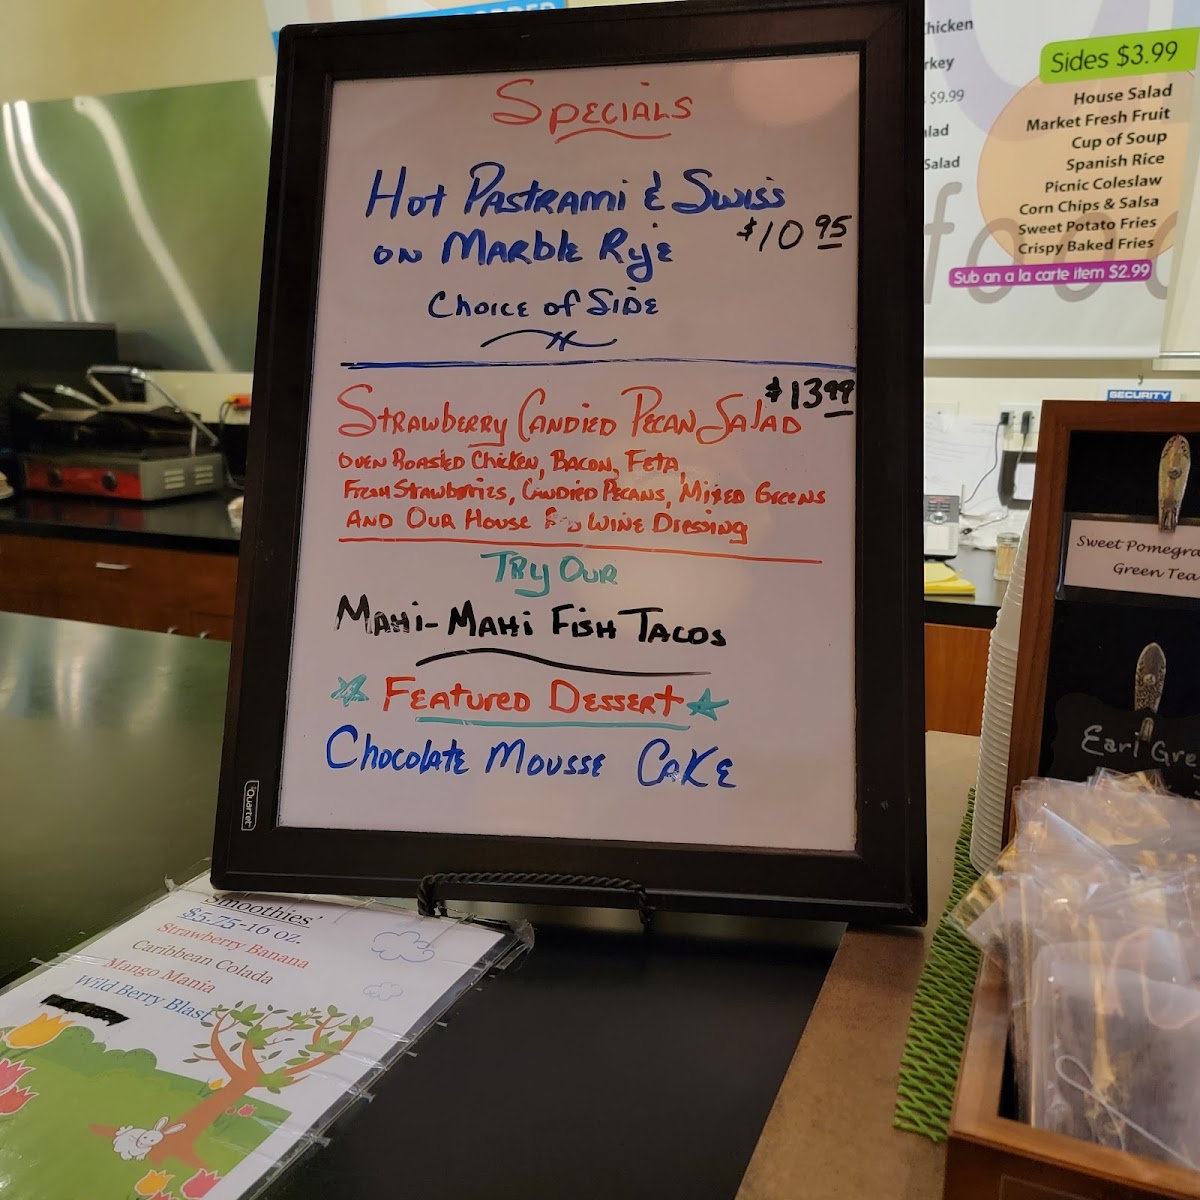 Specials
Hot Pastrami & Swiss
on Marble Rye
$10 95
Choice of Side
Strawberry Candied Pecan Salad
$13 99
Oven Roasted Chicken, Bacon, Feta,
Fresh Strawberries, Candied Pecans, Mixed Greens
and Our House Wine Dressing
Try Our
Mahi-Mahi Fish Tacos
Featured Dessert
Chocolate Mousse Cake
Quartet
Smoothies'
$5.75-16 oz.
Strawberry Banana
Caribbean Colada
Mango Mania
Wild Berry Blast
Chicken
rkey
$9.99
alad
Salad
Sides $3.99
House Salad
Market Fresh Fruit
Cup of Soup
Spanish Rice
Picnic Coleslaw
Corn Chips & Salsa
Sweet Potato Fries
Crispy Baked Fries
Sub an a la carte item $2.99
foo
SECURITY
Sweet Pomegra
Green Tea
Earl Gre